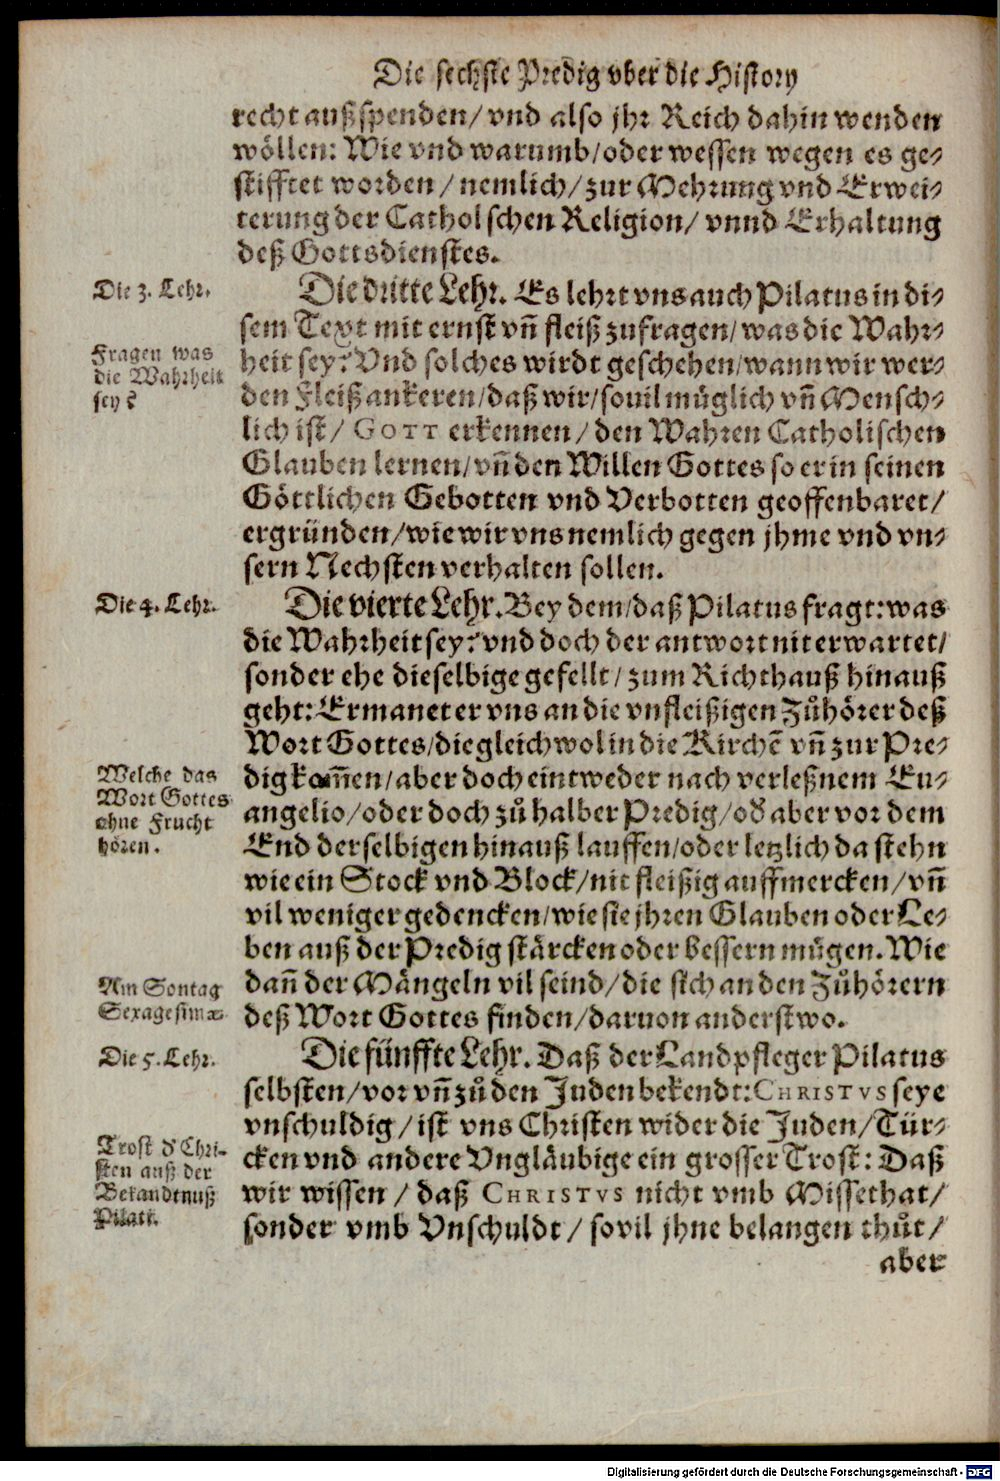 Die sechste Predig vber die History
recht außspenden/ vnd also jhr Reich dahin wenden
wöllen: Wie vnd warumb/ oder wessen wegen es ge-
stifftet worden / nemlich/ zur Mehrung vnd Erwei-
terung der Cathol schen Religion/ vnnd Erhaltung
deß Gottsdienstes.
Die 3. Lehr.
Die dritte Lehr. Es lehrt vns auch Pilatus in di-
sem Text mit ernst vñ fleiß zufragen/ was die Wahr-
Fragen was
die Wahrheit
sey?
heit sey? Vnd solches wirdt geschehen/wann wir wer-
den Fleiß ankeren/daß wir/souil müglich vñ Mensch-
lich ist/ GOTT erkennen/ den Wahren Catholischen
Glauben lernen/vñ den Willen Gottes so er in seinen
Göttlichen Gebotten vnd Verbotten geoffenbaret/
ergründen/wie wir vns nemlich gegen jhme vnd vn-
sern Nechsten verhalten sollen.
Die 4. Lehr.
Die vierte Lehr. Bey dem/daß Pilatus fragt: was
die Wahrheit sey? vnd doch der antwort nit erwartet/
sonder ehe dieselbige gefellt/ zum Richthauß hinauß
geht: Ermanet er vns an die vnfleißigen Zůhörer deß
Wort Gottes/die gleichwol in die Kirchẽ vñ zur Pre-
Welche das
Wort Gottes
ohne Frucht
hören.
dig kom̃en/aber doch eintweder nach verleßnem Eu-
angelio/oder doch zů halber Predig/od' aber vor dem
End derselbigen hinauß lauffen/oder letzlich da stehn
wie ein Stock vnd Block/nit fleißig auffmercken/ vñ
vil weniger gedencken/wie sie jhren Glauben oder Le-
ben auß der Predig stärcken oder bessern mügen. Wie
Am Sontag
Sexagesimæ.
dañ der Mängeln vil seind/die sich an den Zůhörern
deß Wort Gottes finden/daruon anderstwo.
Die 5. Lehr.
Die fünffte Lehr. Daß der Landpfleger Pilatus
selbsten/vor vñ zů den Juden bekendt: CHRISTVS seye
vnschuldig/ ist vns Christen wider die Juden/Tür-
Trost d' Chri-
sten auß der
Bekandtnuß
Pilati.
cken vnd andere Vngläubige ein grosser Trost: Daß
wir wissen / daß CHRISTVS nicht vmb Missethat/
sonder vmb Vnschuldt / sovil jhne belangen thůt/
aber
Digitalisierung gefördert durch die Deutsche Forschungsgemeinschaft - DFG